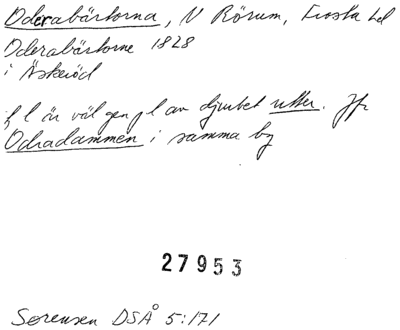 Oderabärtorna, N Rörum, Frosta hd
Oderabärtorne 1828
i Äskeröd
f l är väl gen pl av djurbet utter. Jfr
Odradammen i samma by
27953
Sorensen DSÅ 5:171